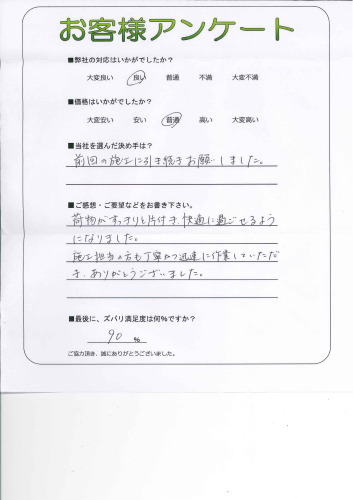 お客様アンケート
■弊社の対応はいかがでしたか？
大変良い 良い 普通 不満 大変不満
■価格はいかがでしたか？
大変安い 安い 普通 高い 大変高い
■当社を選んだ決め手は？
前回の施工に引き続きお願いしました。
■ご感想・ご要望などをお書き下さい。
荷物がすっきりと片付き、快適に過ごせるよう
になりました。
施工担当の方も丁寧かつ迅速に作業していただ
き、ありがとうございました。
■最後に、ズバリ満足度は何％ですか？
90 ％
ご協力頂き、誠にありがとうございました。